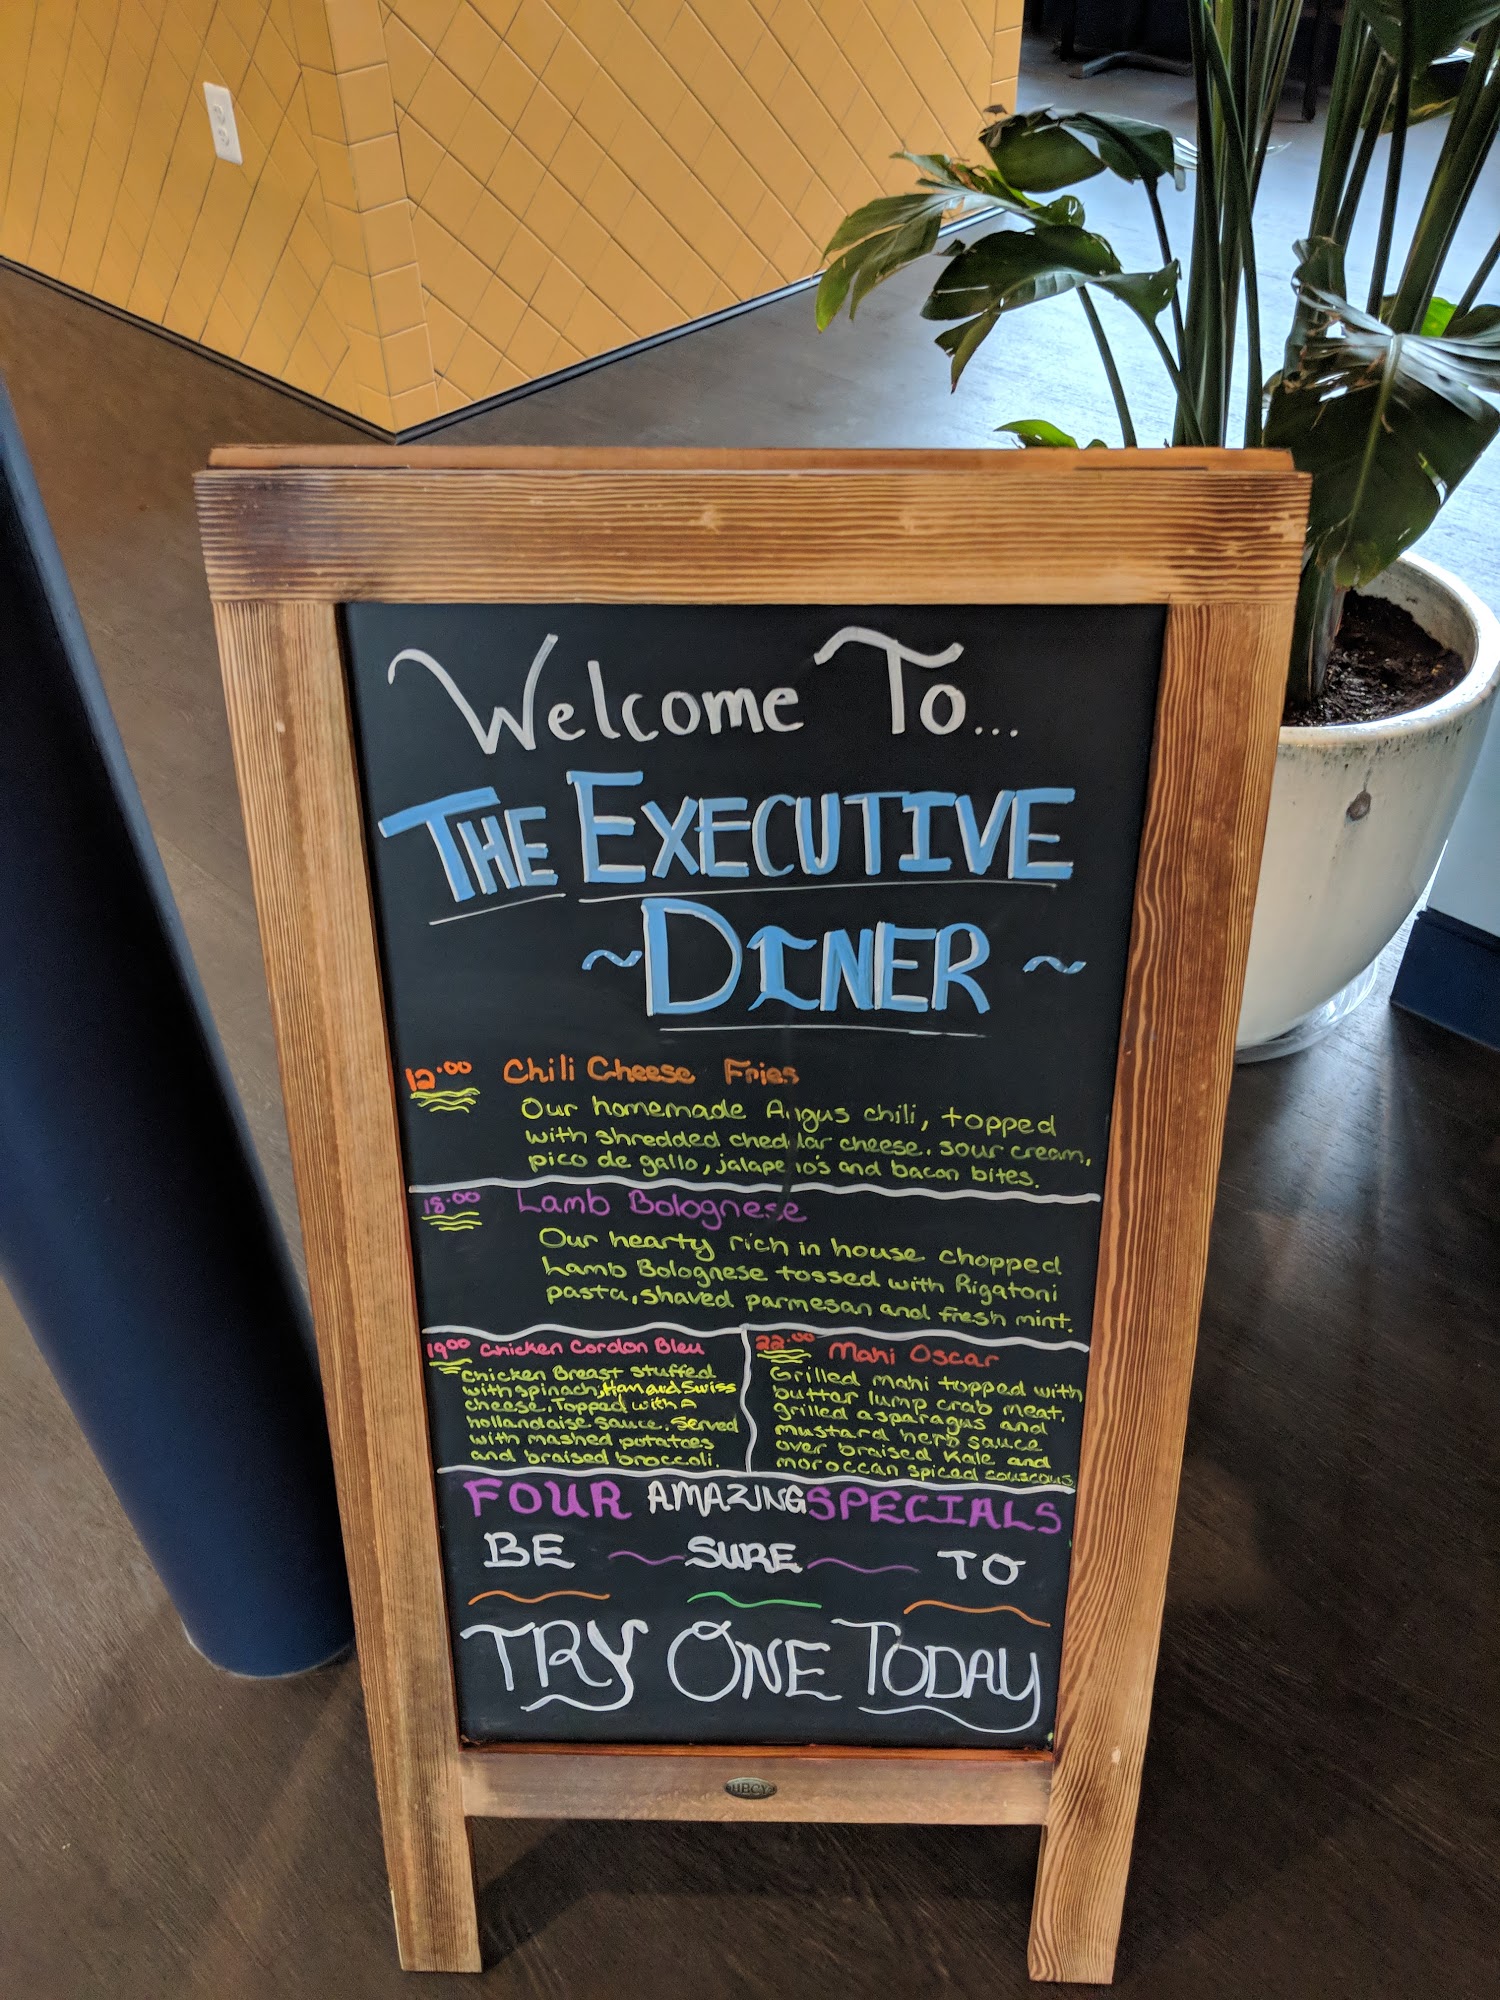 Welcome To...
THE EXECUTIVE
~DINER~
12.00 Chili Cheese Fries
Our homemade Angus chili, topped
with shredded cheddar cheese, sour cream,
pico de gallo, jalapeno's and bacon bites.
18.00 Lamb Bolognese
Our hearty rich in house chopped
Lamb Bolognese tossed with Rigatoni
pasta, shaved parmesan and fresh mint.
19.00 Chicken Cordon Bleu
Chicken Breast stuffed
with spinach, Ham and Swiss
cheese, Topped with A
hollandaise sauce. Served
with mashed potatoes
and braised broccoli.
22.00 Mahi Oscar
Grilled Mahi topped with
butter lump crab meat,
grilled asparagus and
mustard herb sauce
over braised Kale and
moroccan spiced couscous
FOUR AMAZING SPECIALS
BE SURE TO
TRY ONE TODAY
HBCY